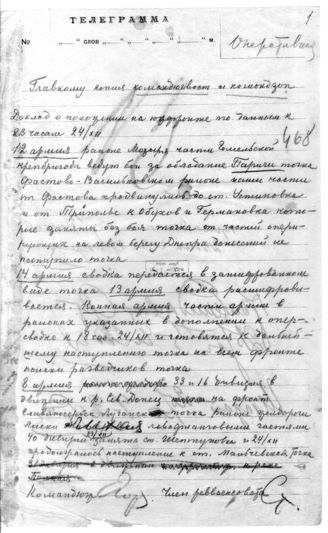 1
ТЕЛЕГРАММА
№ „ “ слов „ “ „ “ ч. „ “ м.
Оперативная
Главкому копия комюговост и комюгзап
Доклад о положении на югфронте по данным к
23 часам 24/XII
468
12 армия районе Мозыря части Гомельской
крепбригады ведут бои за обладание Паричи точка
Фастово-Васильковском районе наши части
от Фастова продвинулись до ст. Устиновка
и от Триполье к Обухов и Германовка кото-
рые заняты без боя точка от частей опери-
рующих на левом берегу Днепра донесений не
поступило точка
14 армия сводка передается в зашифрованном
виде точка 13 армия сводка расшифровы-
вается. Конная армия части армии в
районах указанных в дополнении к опер-
сводке к 18 час. 24/XII и готовятся к дальней-
шему наступлению точка на всем фронте
поиски разведчиков точка
8 армия 33 и 16 дивизия в
движении к р. Сев. Донец на фронт
Славяносербск Луганск точка районе
левофланговыми частями
40 дивизии занята ст. и 24/XII
продолжалось наступление к ст. Мальчевской точка
Командюж Член реввоенсовета